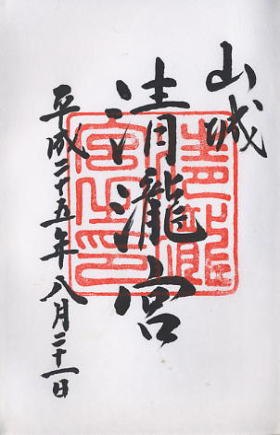 山城
清瀧宮
平成二十五年八月二十一日